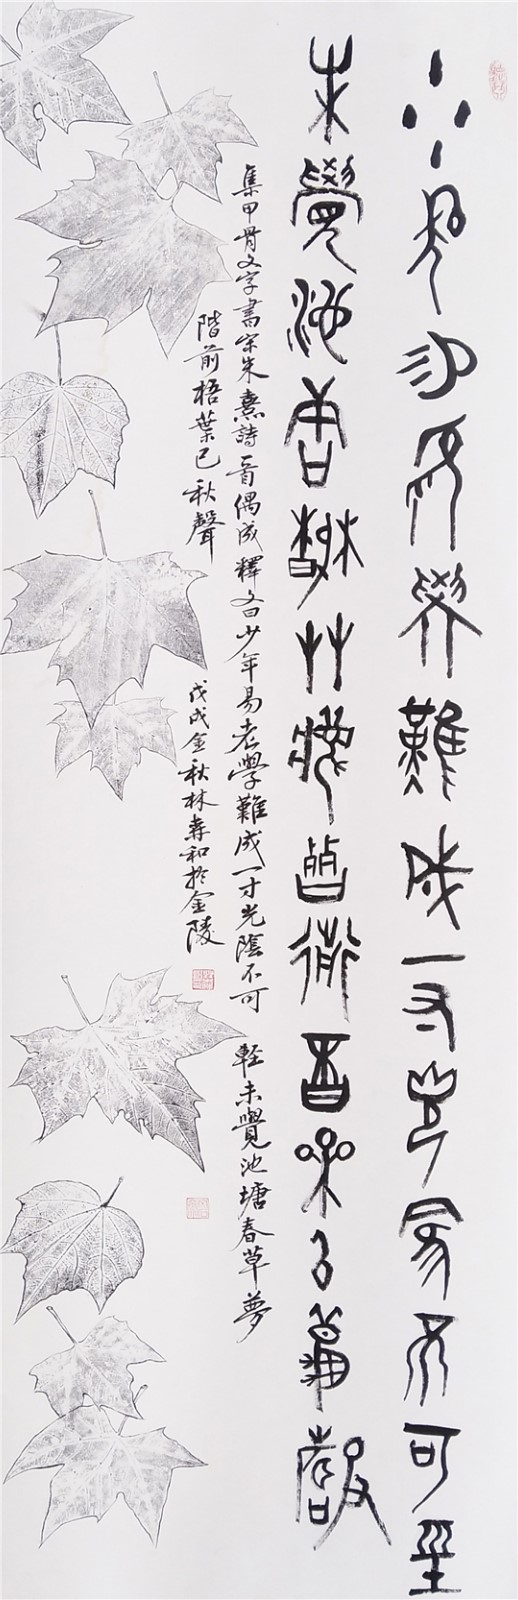 少年易老學難成一寸光陰不可輕
未覺池塘春草夢階前梧葉已秋聲
集甲骨文字書宋朱熹詩一首偶成 釋文曰少年易老學難成一寸光陰不可輕未覺池塘春草夢
階前梧葉已秋聲
戊戌金秋林和於金陵